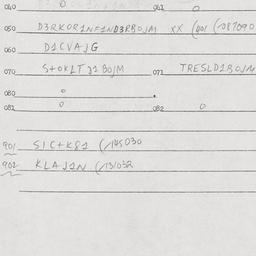 040 0 041 0
050 D3RKOR1NF1ND3RBOJM XX (401 (/087090
060 D1CVAJG
070 S+OKLT31BOJM 071 TRESLD1BOJM
080 0
081 0 082 0
901 SIC+K81 (/145030
902 KLAJ1N (/131032